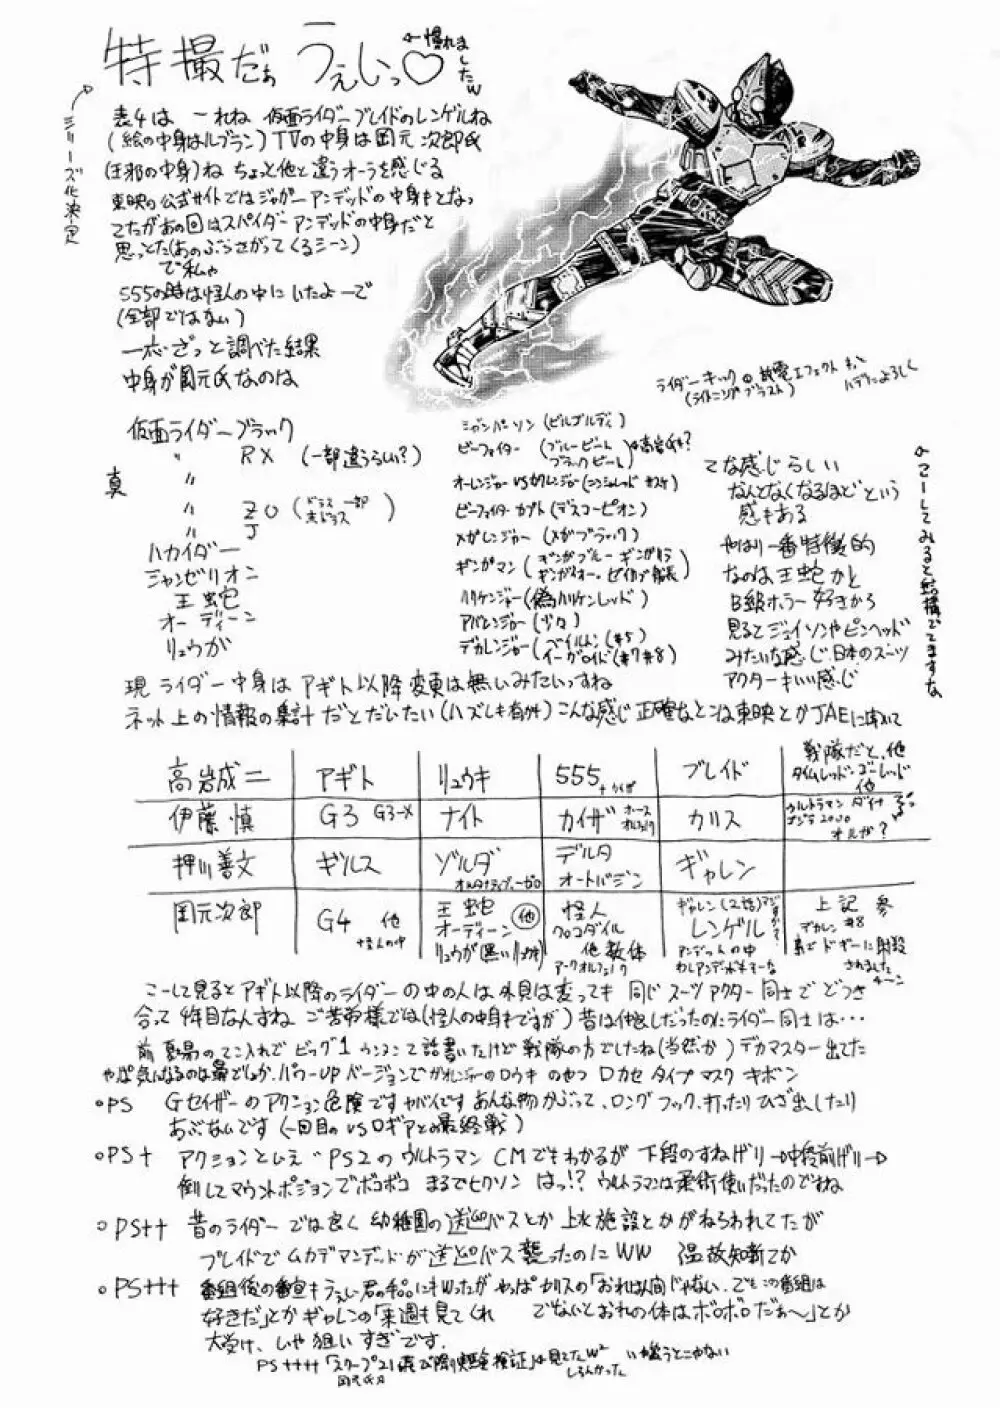 特撮だぁ うぇしっ♡
←慣れましたw
シリーズ化決定
表4は 一れね 仮面ライダーブレイドのレンゲルね
(絵の中身はルブラン)TVの中身は岡元次郎氏
(王邪の中身)ね ちょっと他と違うオーラを感じる
東映の公式サイトではジャガーアンデッドの中身もとなっ
てたがあの回はスパイダーアンデッドの中身だと
思っとた(あのぶらさがってくるシーン)
で私ゃ
555の時は怪人の中にいたよーで
(全部ではない)
一応ざっと調べた結果
中身が岡元氏なのは
ライダーキックの放電エフェクトも
(ライトニングブラスト)
ハデによろしく
仮面ライダーブラック
〃 RX (一部違うらしい?)
真 〃
〃 ZO (ドラス一部 赤ドラス)
〃 J
ハカイダー
ジャンゼリオン
王蛇
オーディーン
リュウガ
ジャンパーソン(ビルゴルディ)
ビーファイター (ブルービート ブラックビート)
オーレンジャーVSカクレンジャー(ニンジャレッド サスケ)
ビーファイターカブト(デスコーピオン)
メガレンジャー(メガブラック)
ギンガマン
ハリケンジャー(偽ハリケンレッド)
アバレンジャー(少々)
デカレンジャー(ベイルドン(#5) イーガロイド(#7#8)
てな感じらしい
なんとなくなるほどという
感もある
やはり一番特徴的
なのは王蛇かと
B級ホラー好きから
見るとジェイソンやピンヘッド
みたいな感じ日本のスーツ
アクターもいい感じ
←こーしてみると結構でてますな
現ライダー中身はアギト以降変更は無いみたいっすね
ネット上の情報の集計だとだいたい(ハズレも有)こんな感じ正確なところは東映とかJAEに
高岩成二 アギト リュウキ 555 +カイザ ブレイド 戦隊だと、他 タイムレッド・ゴーレッド 他
伊藤 慎 G3 G3-X ナイト カイザ ホースオルフェノク カリス ウルトラマンダイナ ゴジラ2000 オルガ?
押川善文 ギルス ゾルダ オルタナティブ・ゼロ デルタ オートバジン ギャレン
岡元次郎 G4 他 怪人の中 王蛇 オーディーン リュウガ(黒いリュウキ) 他 怪人 クロコダイル 他数体 アークオルフェノク ギャレン(2話)マジすか? レンゲル アンデットの中 上記参 デカレン#8
こーして見るとアギト以降のライダーの中の人は外見は変っても同じスーツアクター同士でどつき
合って4年目なんすね ご苦労様です(怪人の中身もですが)昔は仲良しだったのにライダー同士は・・・
前 夏場のてこ入れでビッグ1ウンヌンて話書いたけど戦隊の方でしたね(当然か)デカマスター出てた
やっぱ気になるのは鼻でしょか、パワーUPバージョンでガオレンジャーのロウキのやつ ロカセタイプマスクキボン
○PS Gセイザーのアクション危険ですヤバイですあんな物かぶって、ロングフック、打ったりひざ出したり
あぶないです(一回目のVSロギアとの最終戦)
○PS+ アクションといえばPS2のウルトラマンCMでもわかるが下段のすねげり→中段前げり→
倒してマウントポジションでボコボコ まるでヒクソン はっ!?ウルトラマンは柔術使いだったのですね
○PS++ 昔のライダーでは良く幼稚園の送迎バスとか上水施設とかがねらわれてたが
ブレイドでムカデアンデッドが送迎バス襲ったのにWW 温故知新てか
○PS+++ 番組後の番宣もうぇしぃ君の手。。にもワロたが やっぱカリスの「おれは人間じゃない、でもこの番組は
好きだ」とかギャレンの「来週も見てくれ でないとおれの体はボロボロだぁ〜」とか
大受け、しゃ狙いすぎです。
PS++++
岡元氏が
しらんかった